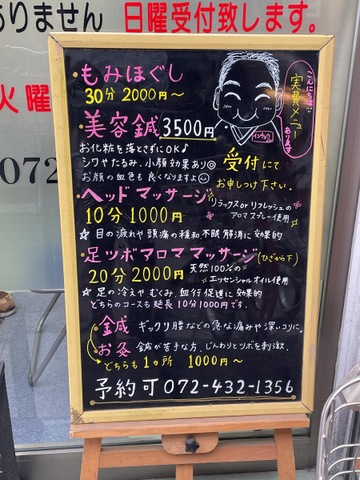 ありません 日曜受付致します。
火曜
072
こんにちは
実費メニュー
あります
もみほぐし
30分 2000円〜
美容鍼 3500円
お化粧を落とさずにOK♪
シワやたるみ、小顔効果あり◎
お顔の血色も良くなりますよ
受付にて
お申しつけ下さい。
ヘッドマッサージ
10分 1000円〜
リラックスorリフレッシュの
アロマスプレー使用
☆ 目の疲れや頭痛の緩和 不眠解消に効果的
足ツボアロママッサージ(ひざから下)
20分 2000円
天然100%の
エッセンシャルオイル使用
☆ 足の冷えやむくみ、血行促進に効果的
どちらのコースも延長10分1000円です。
☆ 金鍼 ギックリ腰などの急な痛みや深いコリに。
お灸 金鍼が苦手な方、じんわりとツボを刺激。
どちらも1ヵ所 1000円〜
予約可 072-432-1356